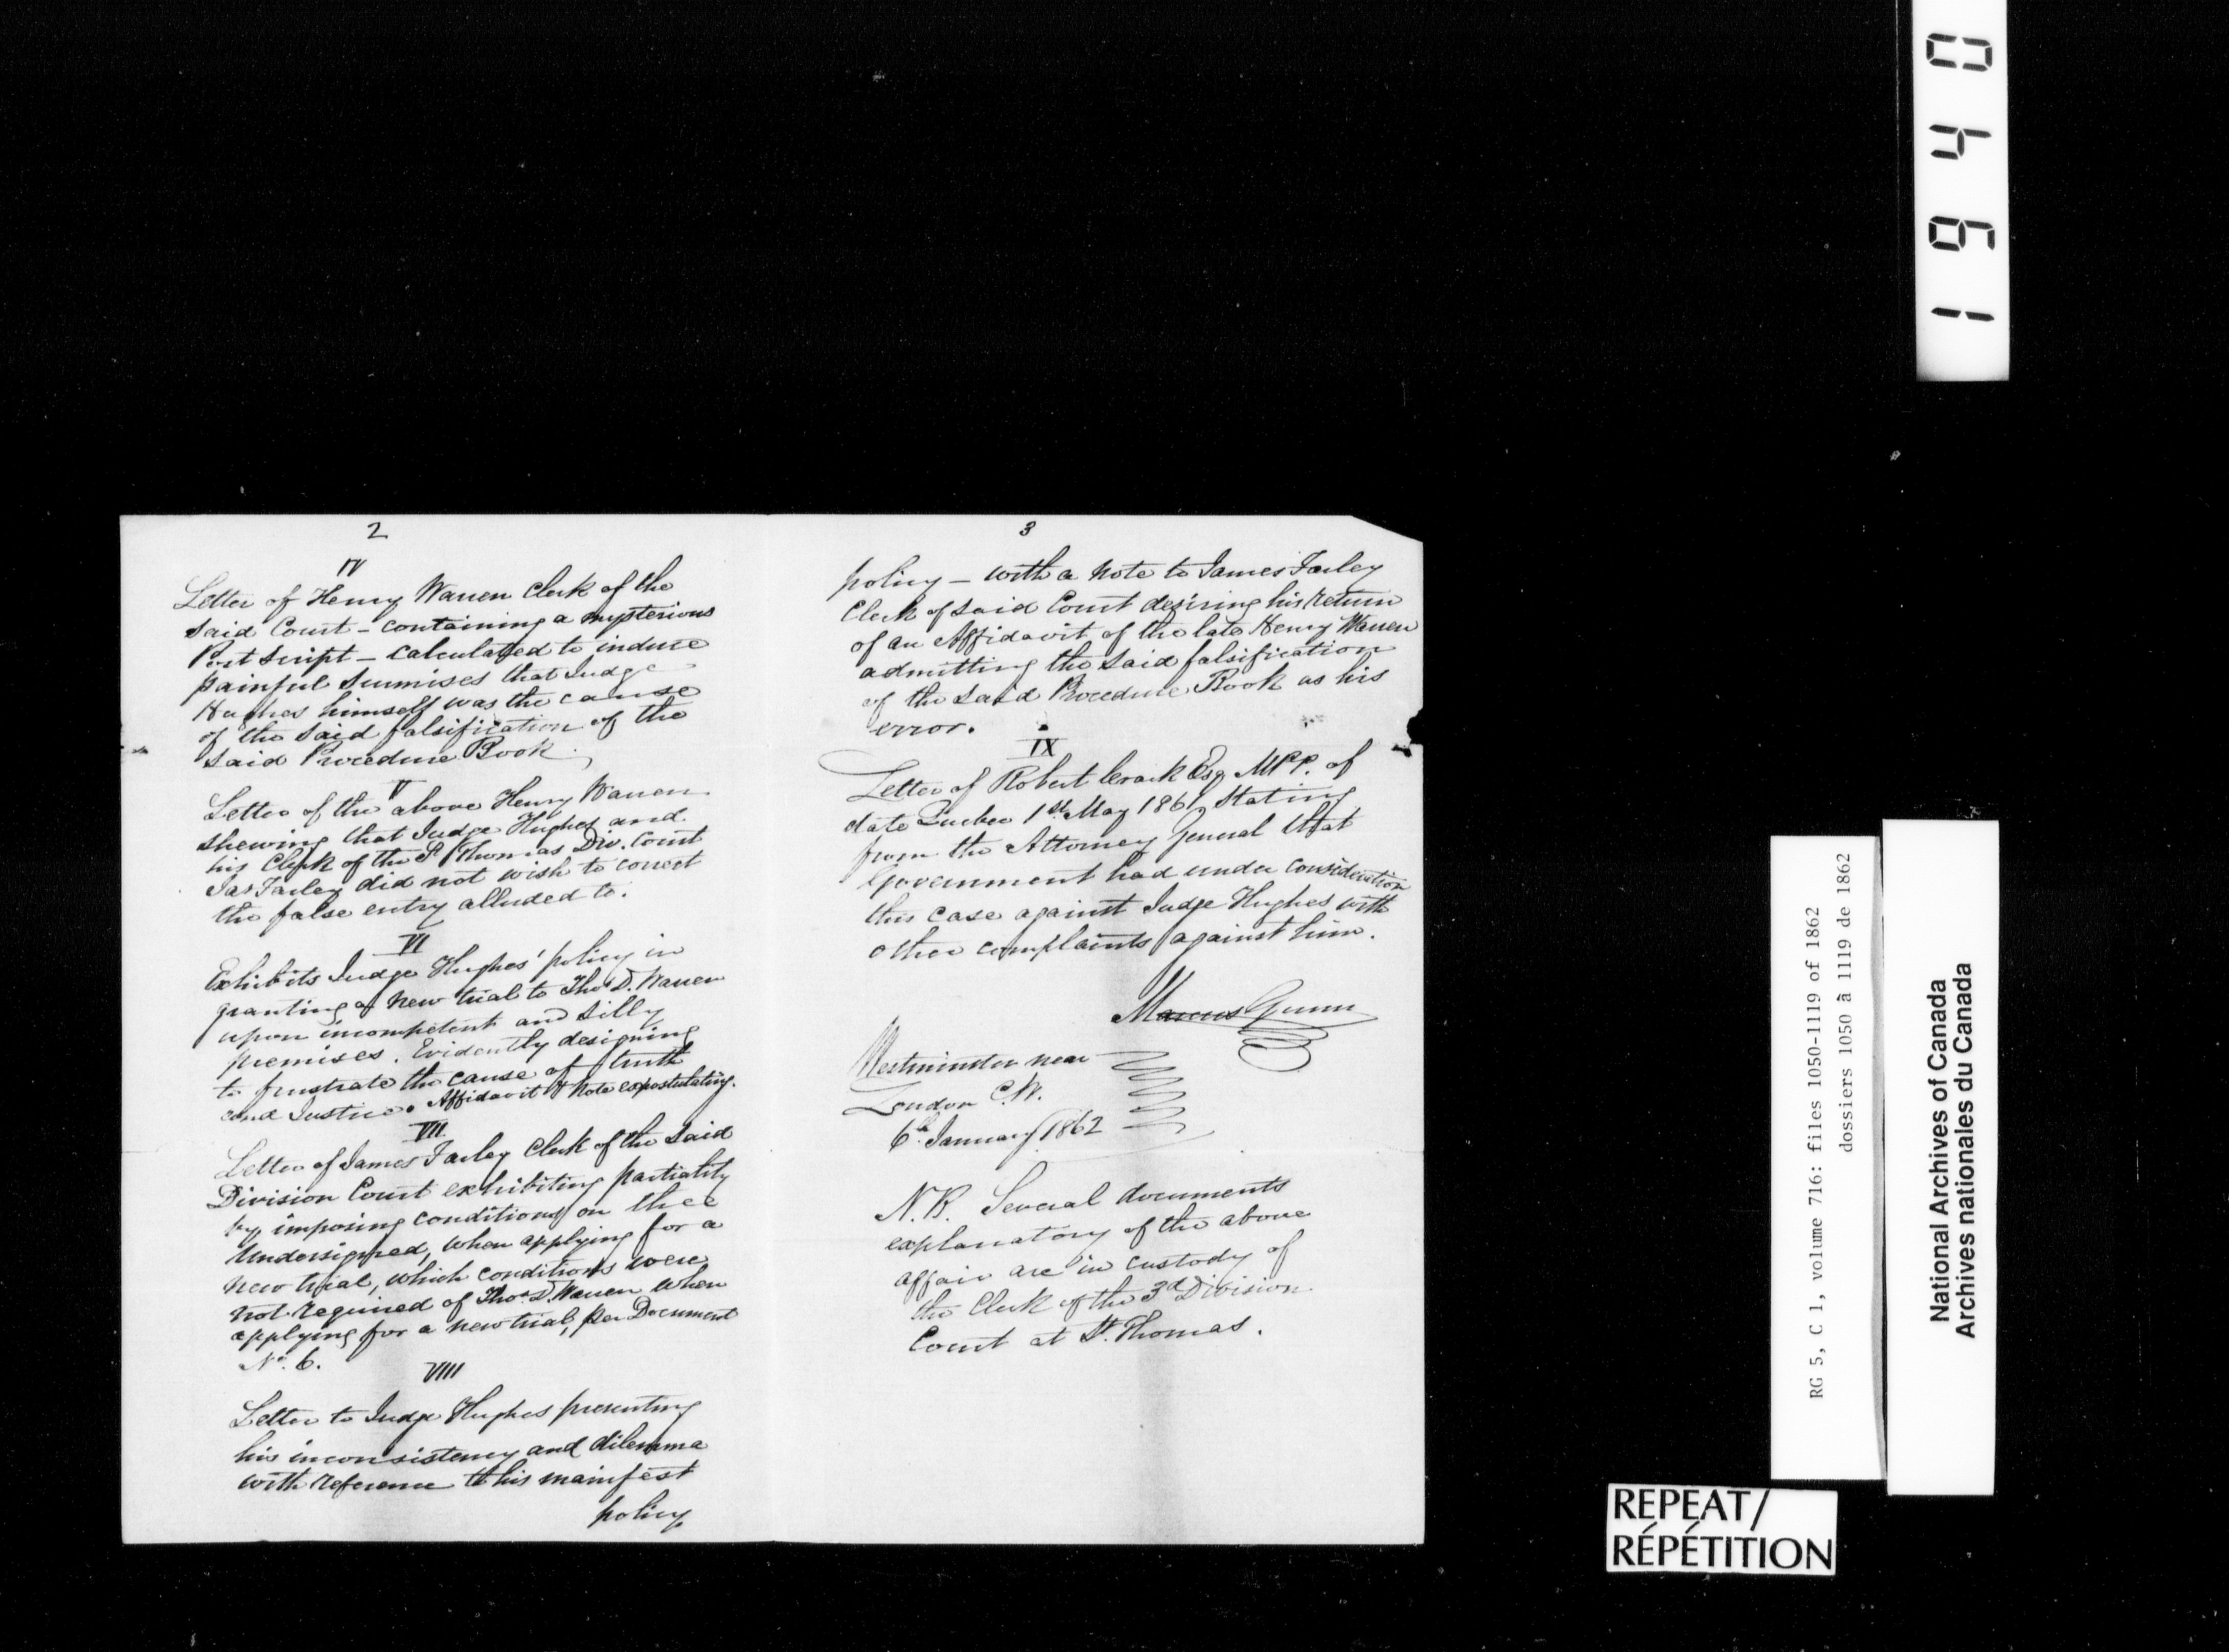 2
IV
Letter of Henry Warren Clerk of the
said Court – containing a mysterious
Post Script – calculated to induce
painful surmises that Judge
Hughes himself was the cause
of the said falsification of the
said Procedure Book.
V
Letter of the above Henry Warren
shewing that Judge Hughes and
his Clerk of the St Thomas Div. Court
Jas Farley did not wish to correct
the false entry alluded to.
VI
Exhibits Judge Hughes' policy in
granting a new trial to Thos D. Warren
upon incompetent and silly
premises. Evidently designing
to frustrate the cause of truth
and Justice. Affidavit & Note expostulating.
VII
Letter of James Farley Clerk of the said
Division Court exhibiting partiality
by imposing conditions on thee
Undersigned, when applying for a
new trial, which conditions were
not required of Thos. D. Warren when
applying for a new trial, per Document
No. 6.
VIII
Letter to Judge Hughes presenting
his inconsistency and dilemma
with reference to his mainfest
policy
3
policy – with a note to James Farley
Clerk of said Court desiring his return
of an Affidavit of the late Henry Warren
admitting the said falsification
of the said Procedure Book as his
error.
IX
Letter of Robert Craik Esq MPP. of
date Quebec 1st May 1861, Stating
from the Attorney General that
Government had under consideration
this case against Judge Hughes with
other complaints against him.
Marcus Gunn
Westminster near
London C.W.
6th January 1862
N.B. Several documents
explanatory of the above
affair are in custody of
the Clerk of the 3d Division
Court at St. Thomas.
1940
RG 5, C 1, volume 716: files 1050-1119 of 1862
dossiers 1050 à 1119 de 1862
National Archives of Canada
Archives nationales du Canada
REPEAT/
RÉPÉTITION